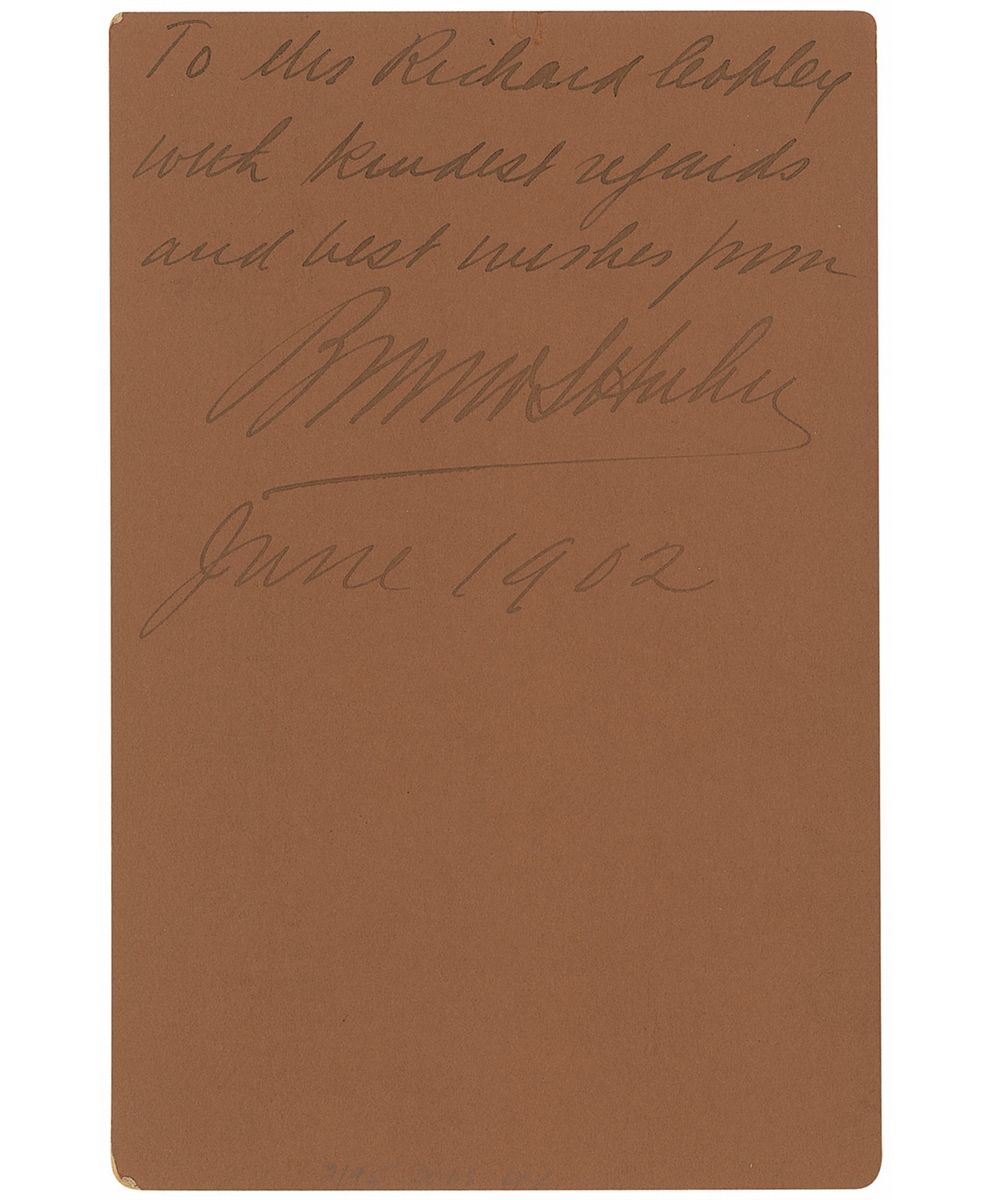 To Mrs Richard Copley
with kindest regards
and best wishes from
June 1902